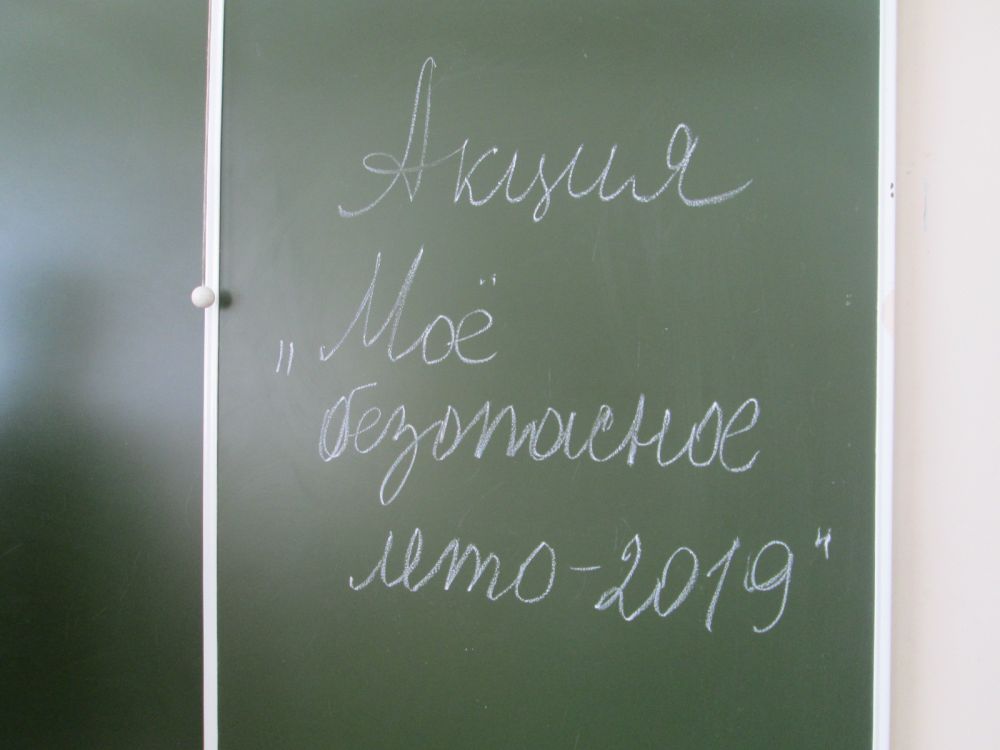 Акция
„Моё
безопасное
лето-2019"